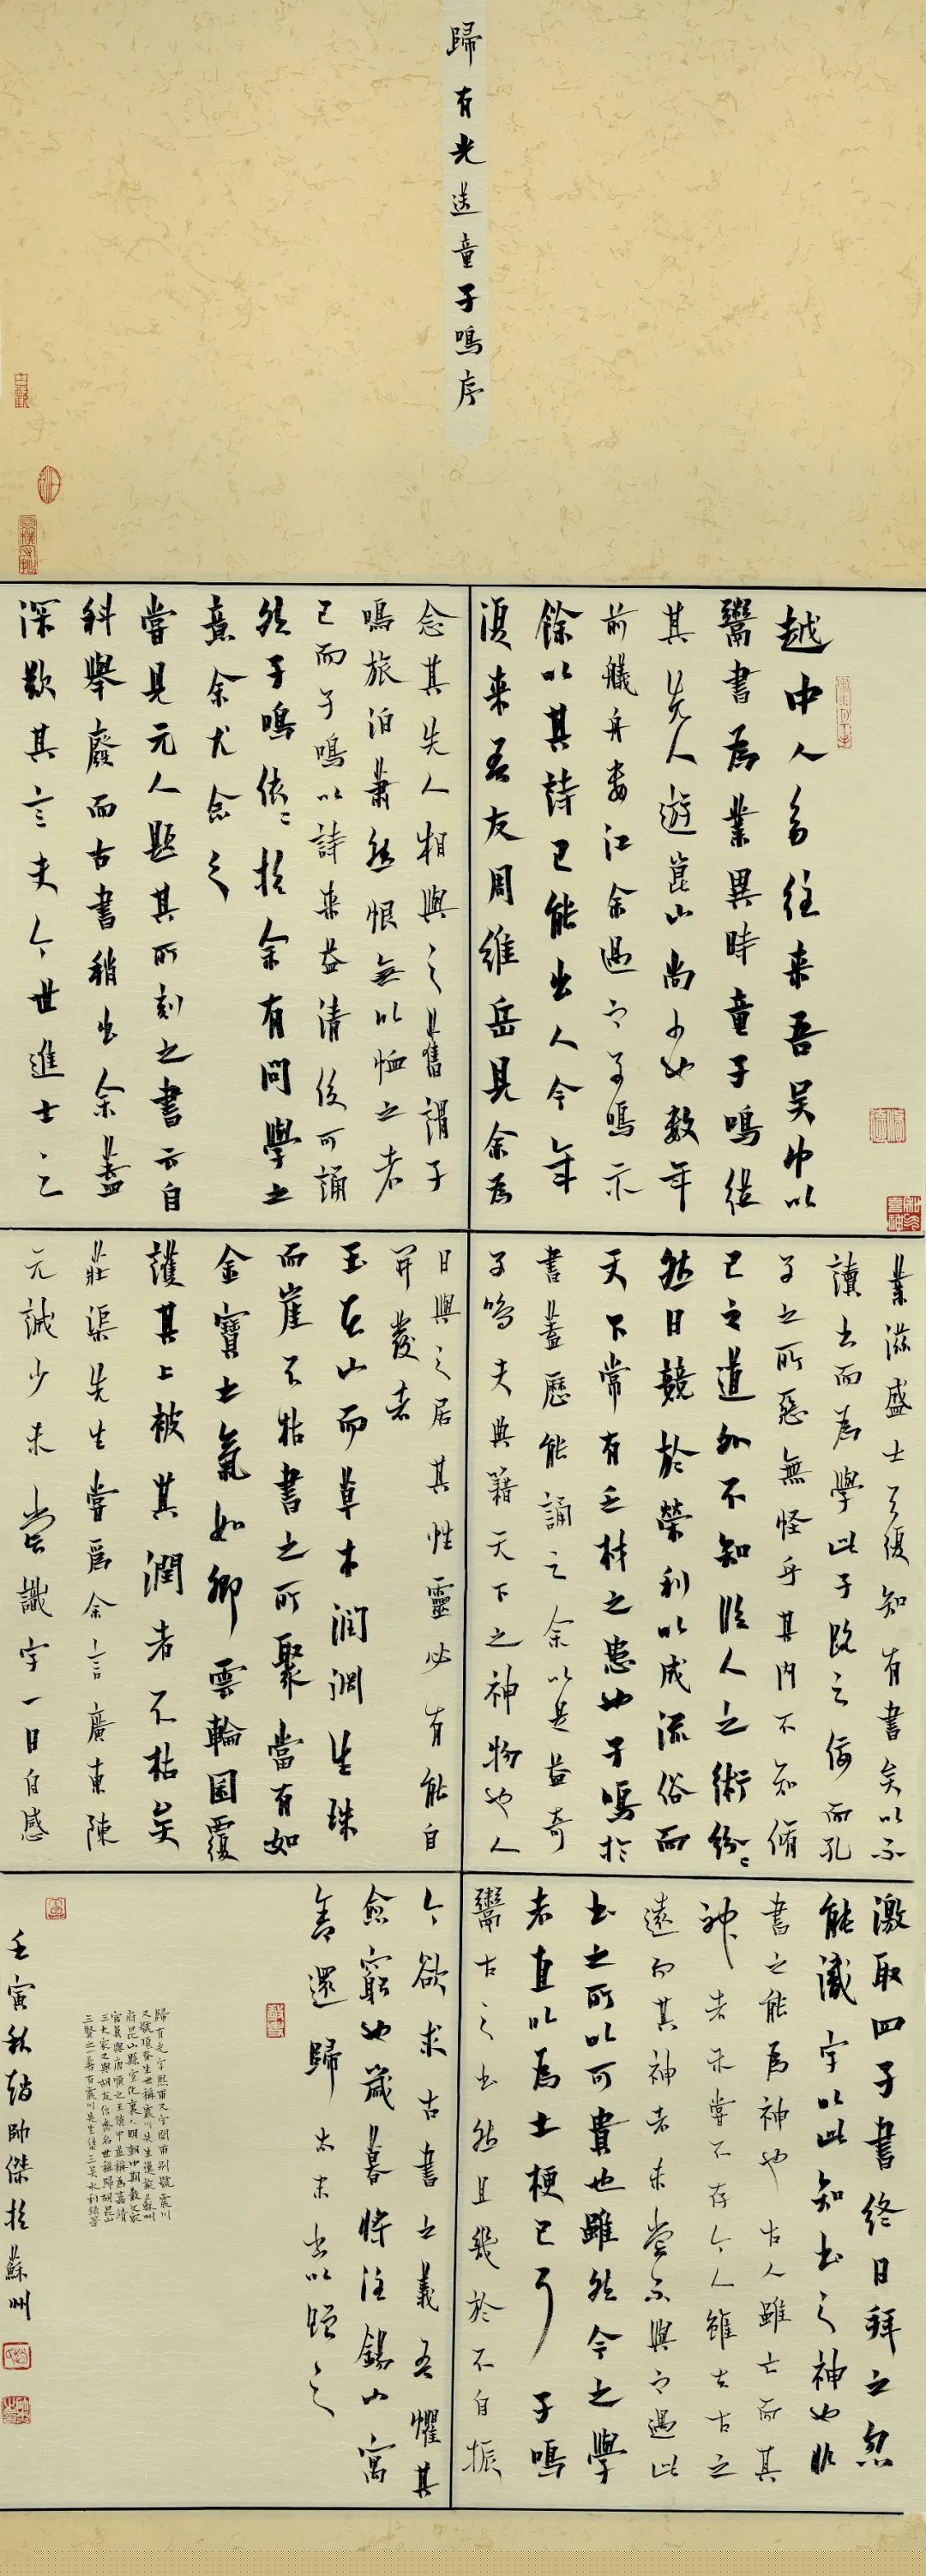 歸有光送童子鳴序
越中人多往来吾吴中以
鬻書為業異時童子鳴從
其先人遊崑山尚少也數年
前艤舟婁江余過之子鳴示
餘以其詩已能出人今年
復来吾友周維岳見余為
念其先人相與之舊謂子
鳴旅泊蕭然恨無以恤之者
已而子鳴以詩来益清俊可誦
然子鳴依〻於余有問學之
意余尤念之
嘗見元人題其所刻之書云自
科舉廢而古書稍出余蓋
深歎其言夫今世進士之
業滋盛士不復知有書矣以不
讀書而為學此子路之佞而孔
子之所惡無怪乎其内不知脩
已之道外不知臨人之術紛〻
然日競於榮利以成流俗而
天下常有乏材之患也子鳴於
書蓋歷能誦之余以是益奇
子鳴夫典籍天下之神物也人
日與之居其性靈必有能自
開發者
玉在山而草木潤淵生珠
而崖不枯書之所聚當有如
金寶之氣如卿雲輪囷覆
護其上被其潤者不枯矣
莊渠先生嘗爲余言廣東陳
元誠少未嘗識字一日自感
激取四子書終日拜之忽
能識字以此知書之神也非
書之能為神也古人雖亡而其
神者未嘗不存今人雖去古之
遠而其神者未嘗不與之遇此
書之所以可貴也雖然今之學
者直以為土梗已耳子鳴
鬻古之書然且幾於不自振
今欲求古書之義吾懼其
愈窮也歲暮將往錫山寓
舍還歸太末書以贈之
歸有光字熙甫又字開甫别號震川
又號項脊生世稱震川先生漢族蘇州
府昆山縣宣化里人明朝中期散文家
官員與唐順之王慎中並稱為嘉靖
三大家又與胡友信齊名世稱歸胡
三賢之一著有震川先生集三吴水利錄等
壬寅秋趙帥傑於蘇州